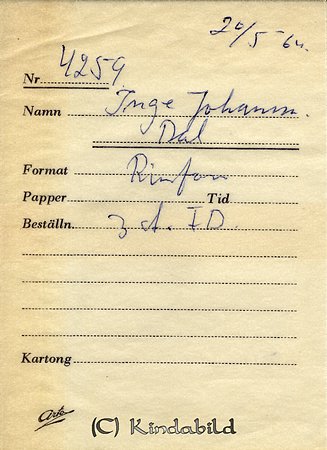 20/5 64.
Nr 4259
Namn Inge Johanss.
Dal
Format Rimfors
Papper Tid
Beställn. 3 st. ID.
Kartong
Ark
(C) Kindabild